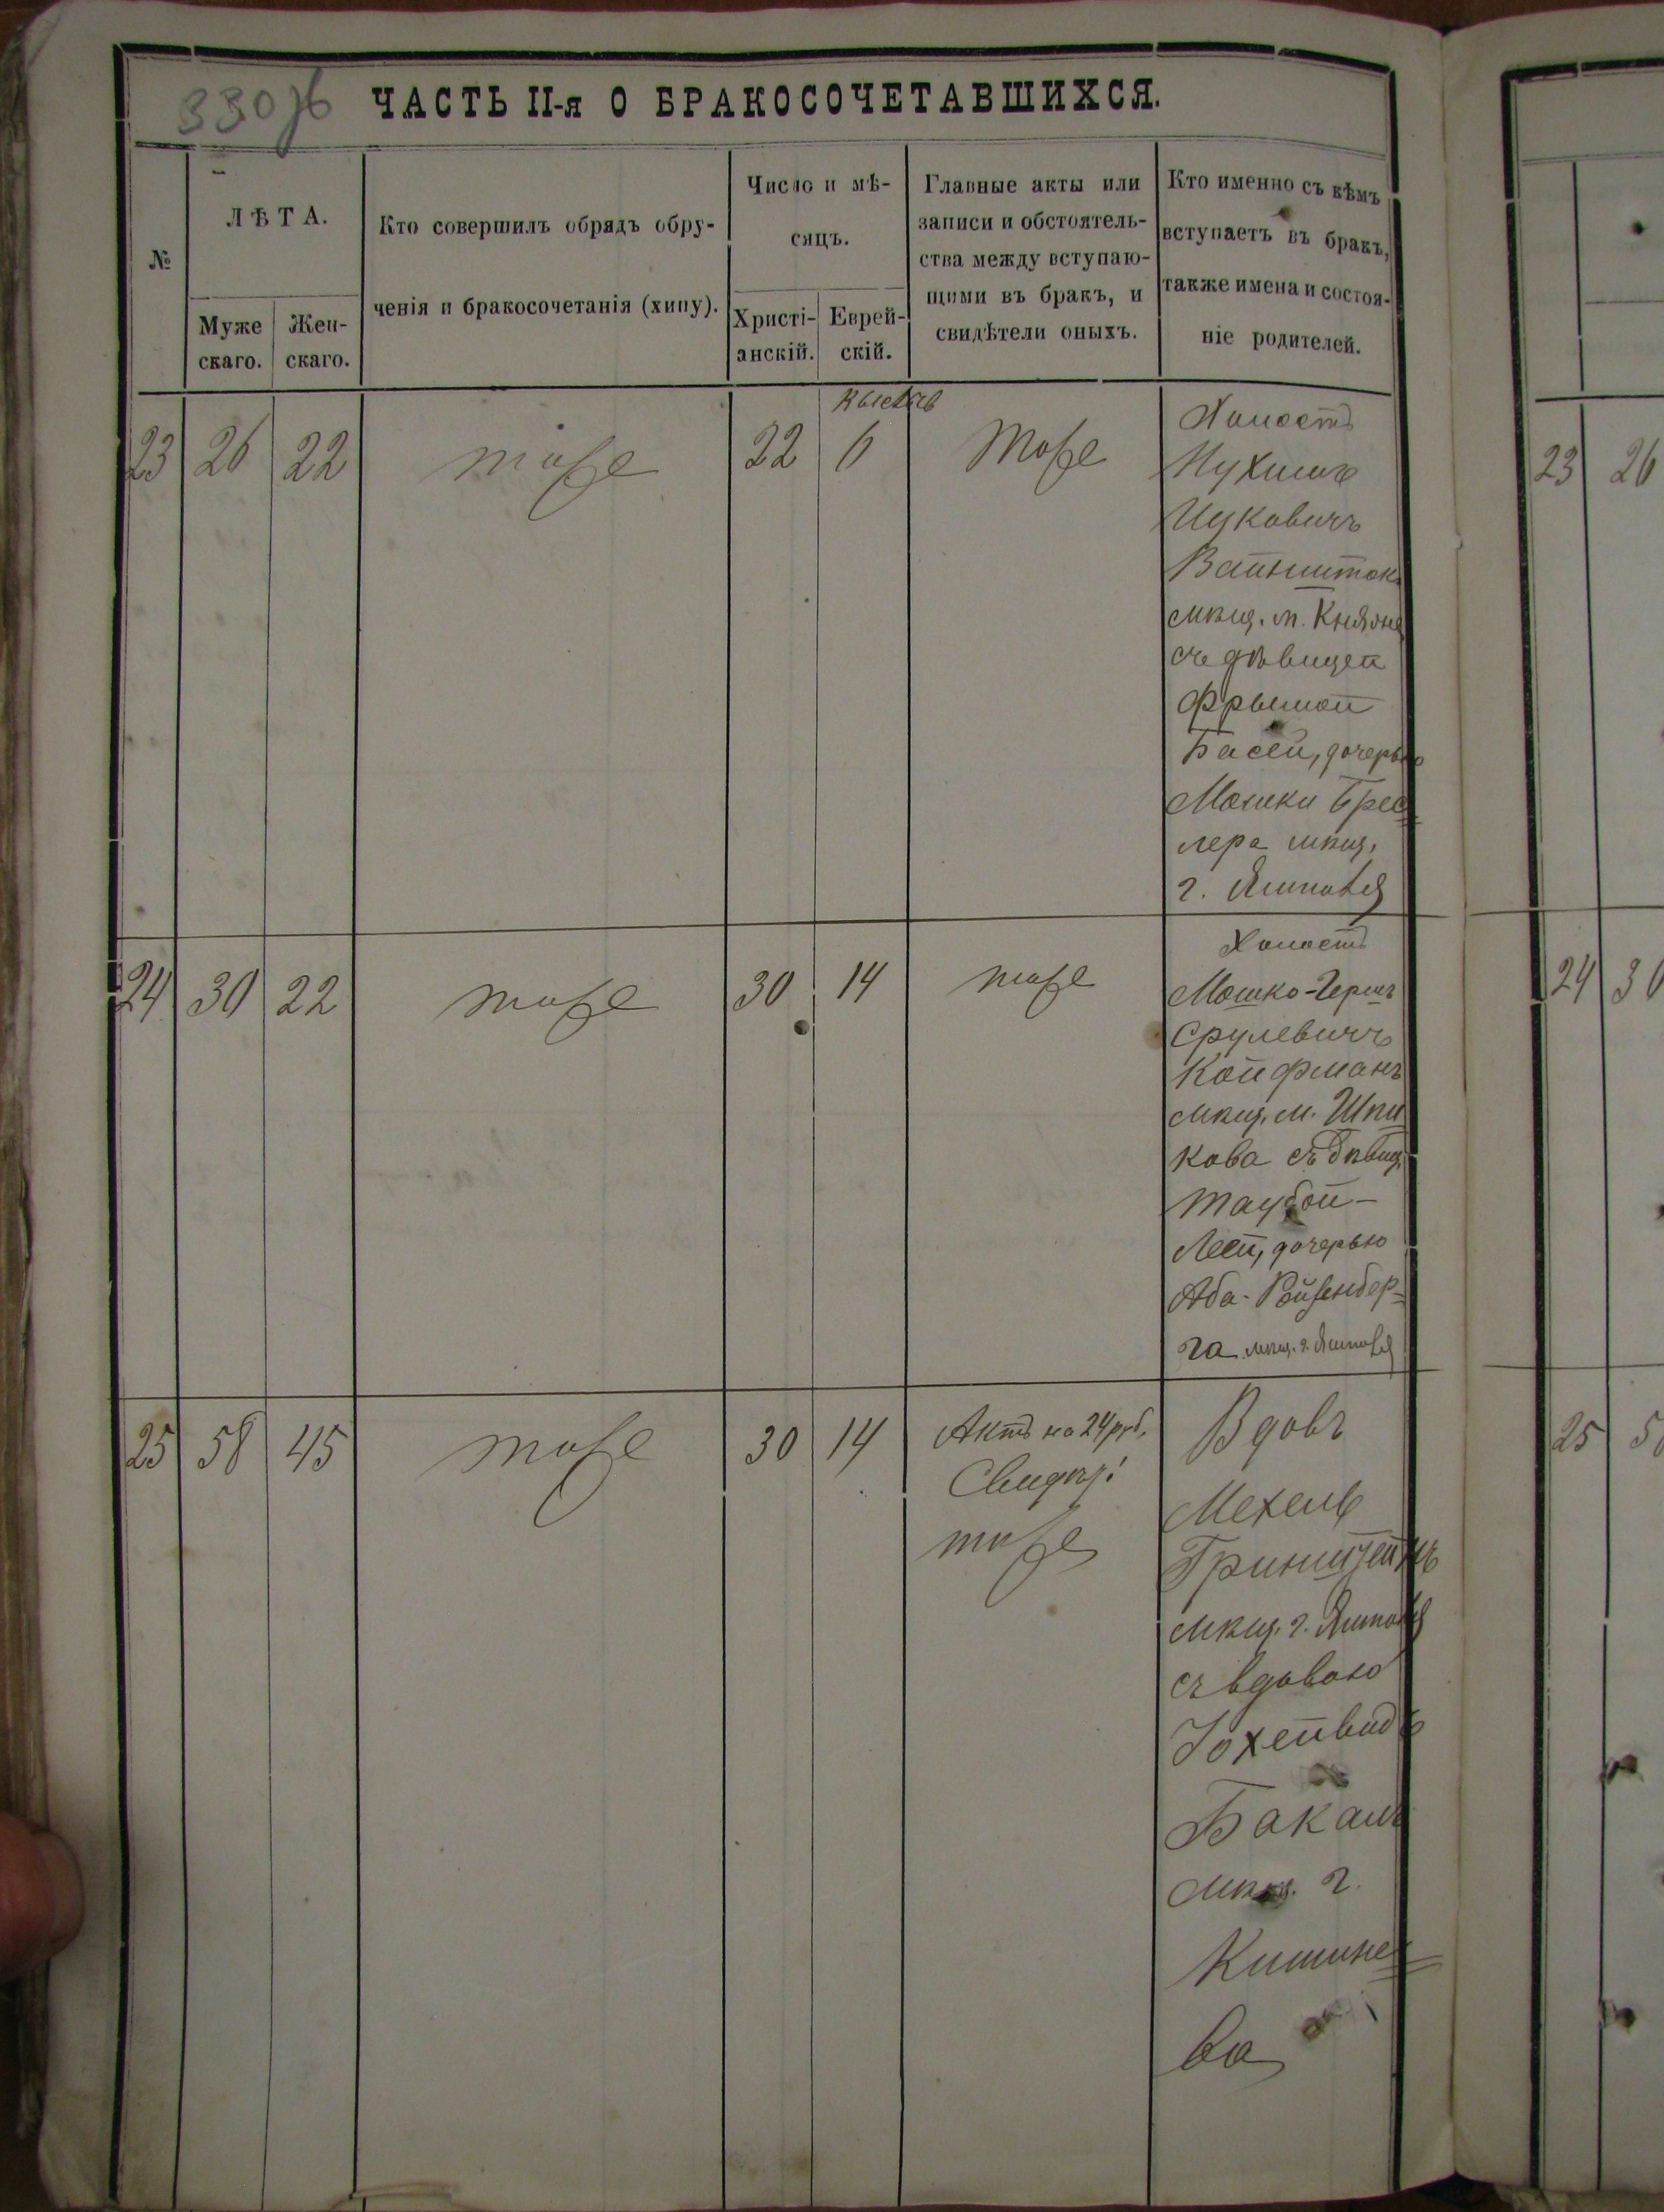 330 об
ЧАСТЬ II-я О БРАКОСОЧЕТАВШИХСЯ.
№
ЛѢТА.
Муже
скаго.
Жен-
скаго.
Кто совершилъ обрядъ обру-
ченія и бракосочетанія (хипу).
Число и мѣ-
сяцъ.
Христі-
анскій.
Еврей-
скій.
Главные акты или
записи и обстоятель-
ства между вступаю-
щими въ бракъ, и
свидѣтели оныхъ.
Кто именно съ кѣмъ
вступаетъ въ бракъ,
также имена и состоя-
ніе родителей.
Кислевъ
23 26 22 тоже 22 6 Тоже
Холостъ
Нухимъ
Ицковичъ
Вайнштокъ
мѣщ. м. Княжа
съ дѣвицей
Фрымой
Басей, дочерью
Мошки Брес
лера мѣщ.
г. Ямполя
24 30 22 тоже 30 14 тоже
Холостъ
Мошко-Гершъ
Срулевичъ
Койфманъ
мѣщ. м. Шпи
кова съ дѣвиц.
Таубой-
Леей, дочерью
Аба-Ройзенбер-
га мѣщ. г. Ямполя
25 58 45 тоже 30 14
Актъ на 24 руб.
Свидѣт:
тоже
Вдовъ
Мехель
Гринштейнъ
мѣщ. г. Ямполя
съ вдовою
Іохейвидъ
Бакалъ
мѣщ. г.
Кишине
ва
23 26
24 30
25 5